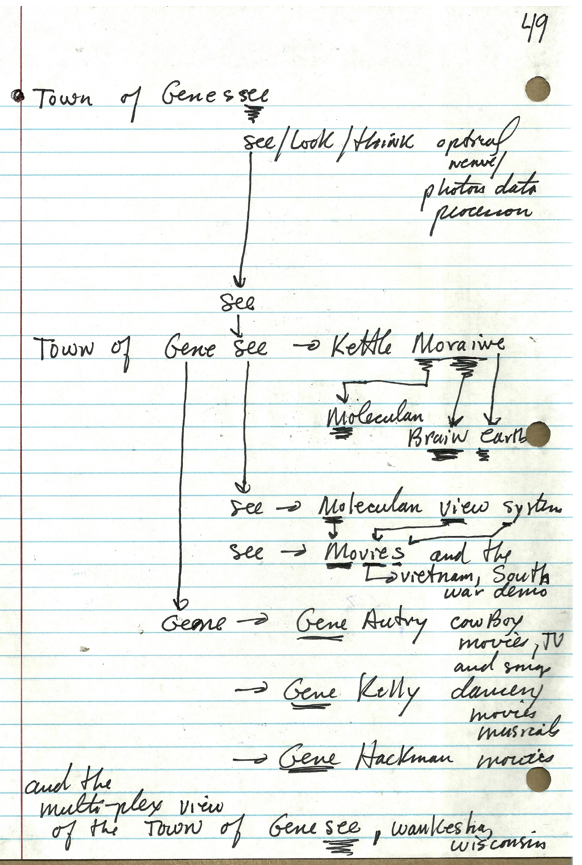 49
Town of Genessee
see/look/think optical
nerve/
photons data
processor
see
Town of Gene see → Kettle Moraine
Molecular
Brain earth
see → Molecular view system
see → Movies and the
vietnam, South
war demo
Gene → Gene Autry cowBoy
movies, TV
and songs
→ Gene Kelly dancery
movies
musicals
→ Gene Hackman movies
and the
multi-plex view
of the Town of Genesee, waukesha,
wisconsin